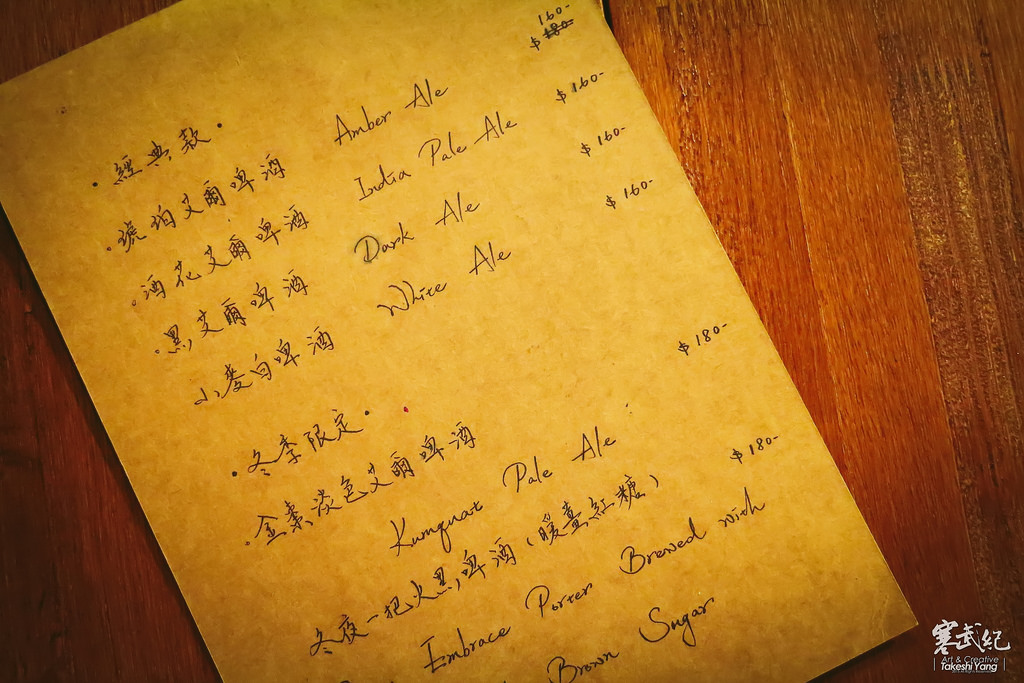 ・經典款・
160-
・琥珀艾爾啤酒 Amber Ale $ 180-
・酒花艾爾啤酒 India Pale Ale $ 160-
・黑艾爾啤酒 Dark Ale $ 160-
小麥白啤酒 White Ale $ 160-
・冬季限定・
・金棗淡色艾爾啤酒 $ 180-
Kumquat Pale Ale
冬夜一把火黑啤酒(暖薑紅糖) $ 180-
Embrace Porter Brewed with
Brown Sugar
寒武紀
Art & Creative
Takeshi Yang